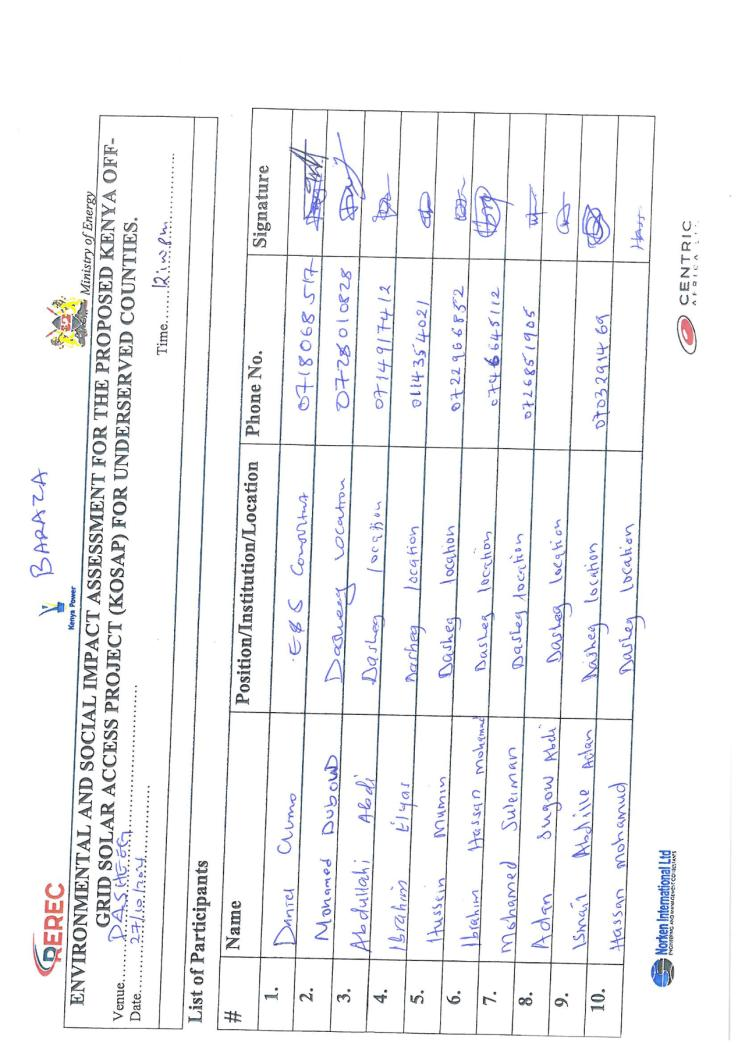 BARAZA
REREC
Kenya Power
Ministry of Energy
ENVIRONMENTAL AND SOCIAL IMPACT ASSESSMENT FOR THE PROPOSED KENYA OFF-
GRID SOLAR ACCESS PROJECT (KOSAP) FOR UNDERSERVED COUNTIES.
Venue......DASHEEG
Date......27/10/2024 Time......12:00pm
List of Participants
# Name Position/Institution/Location Phone No. Signature
1. Daniel E&S 0718068517
2. Mohamed DUBOW Dasheeg Location 0728010828
3. Abdullahi Abdi Dasheg location 0714917412
4. Ibrahim Elyas Dasheg location 0114354021
5. Hussein Mumin Dasheg location 0722966852
6. Ibrahim Hassan mohamud Dasheg location 0746645112
7. Mohamed Suleiman Dasheg location 0726851905
8. Adan Sugow Abdi Dasheg location
9. Ismail Abdille Adan Dasheg location 0703291469
10. Hassan mohamud Dasheg location Hass
Norken International Ltd
CENTRIC
AFRICA LTD.